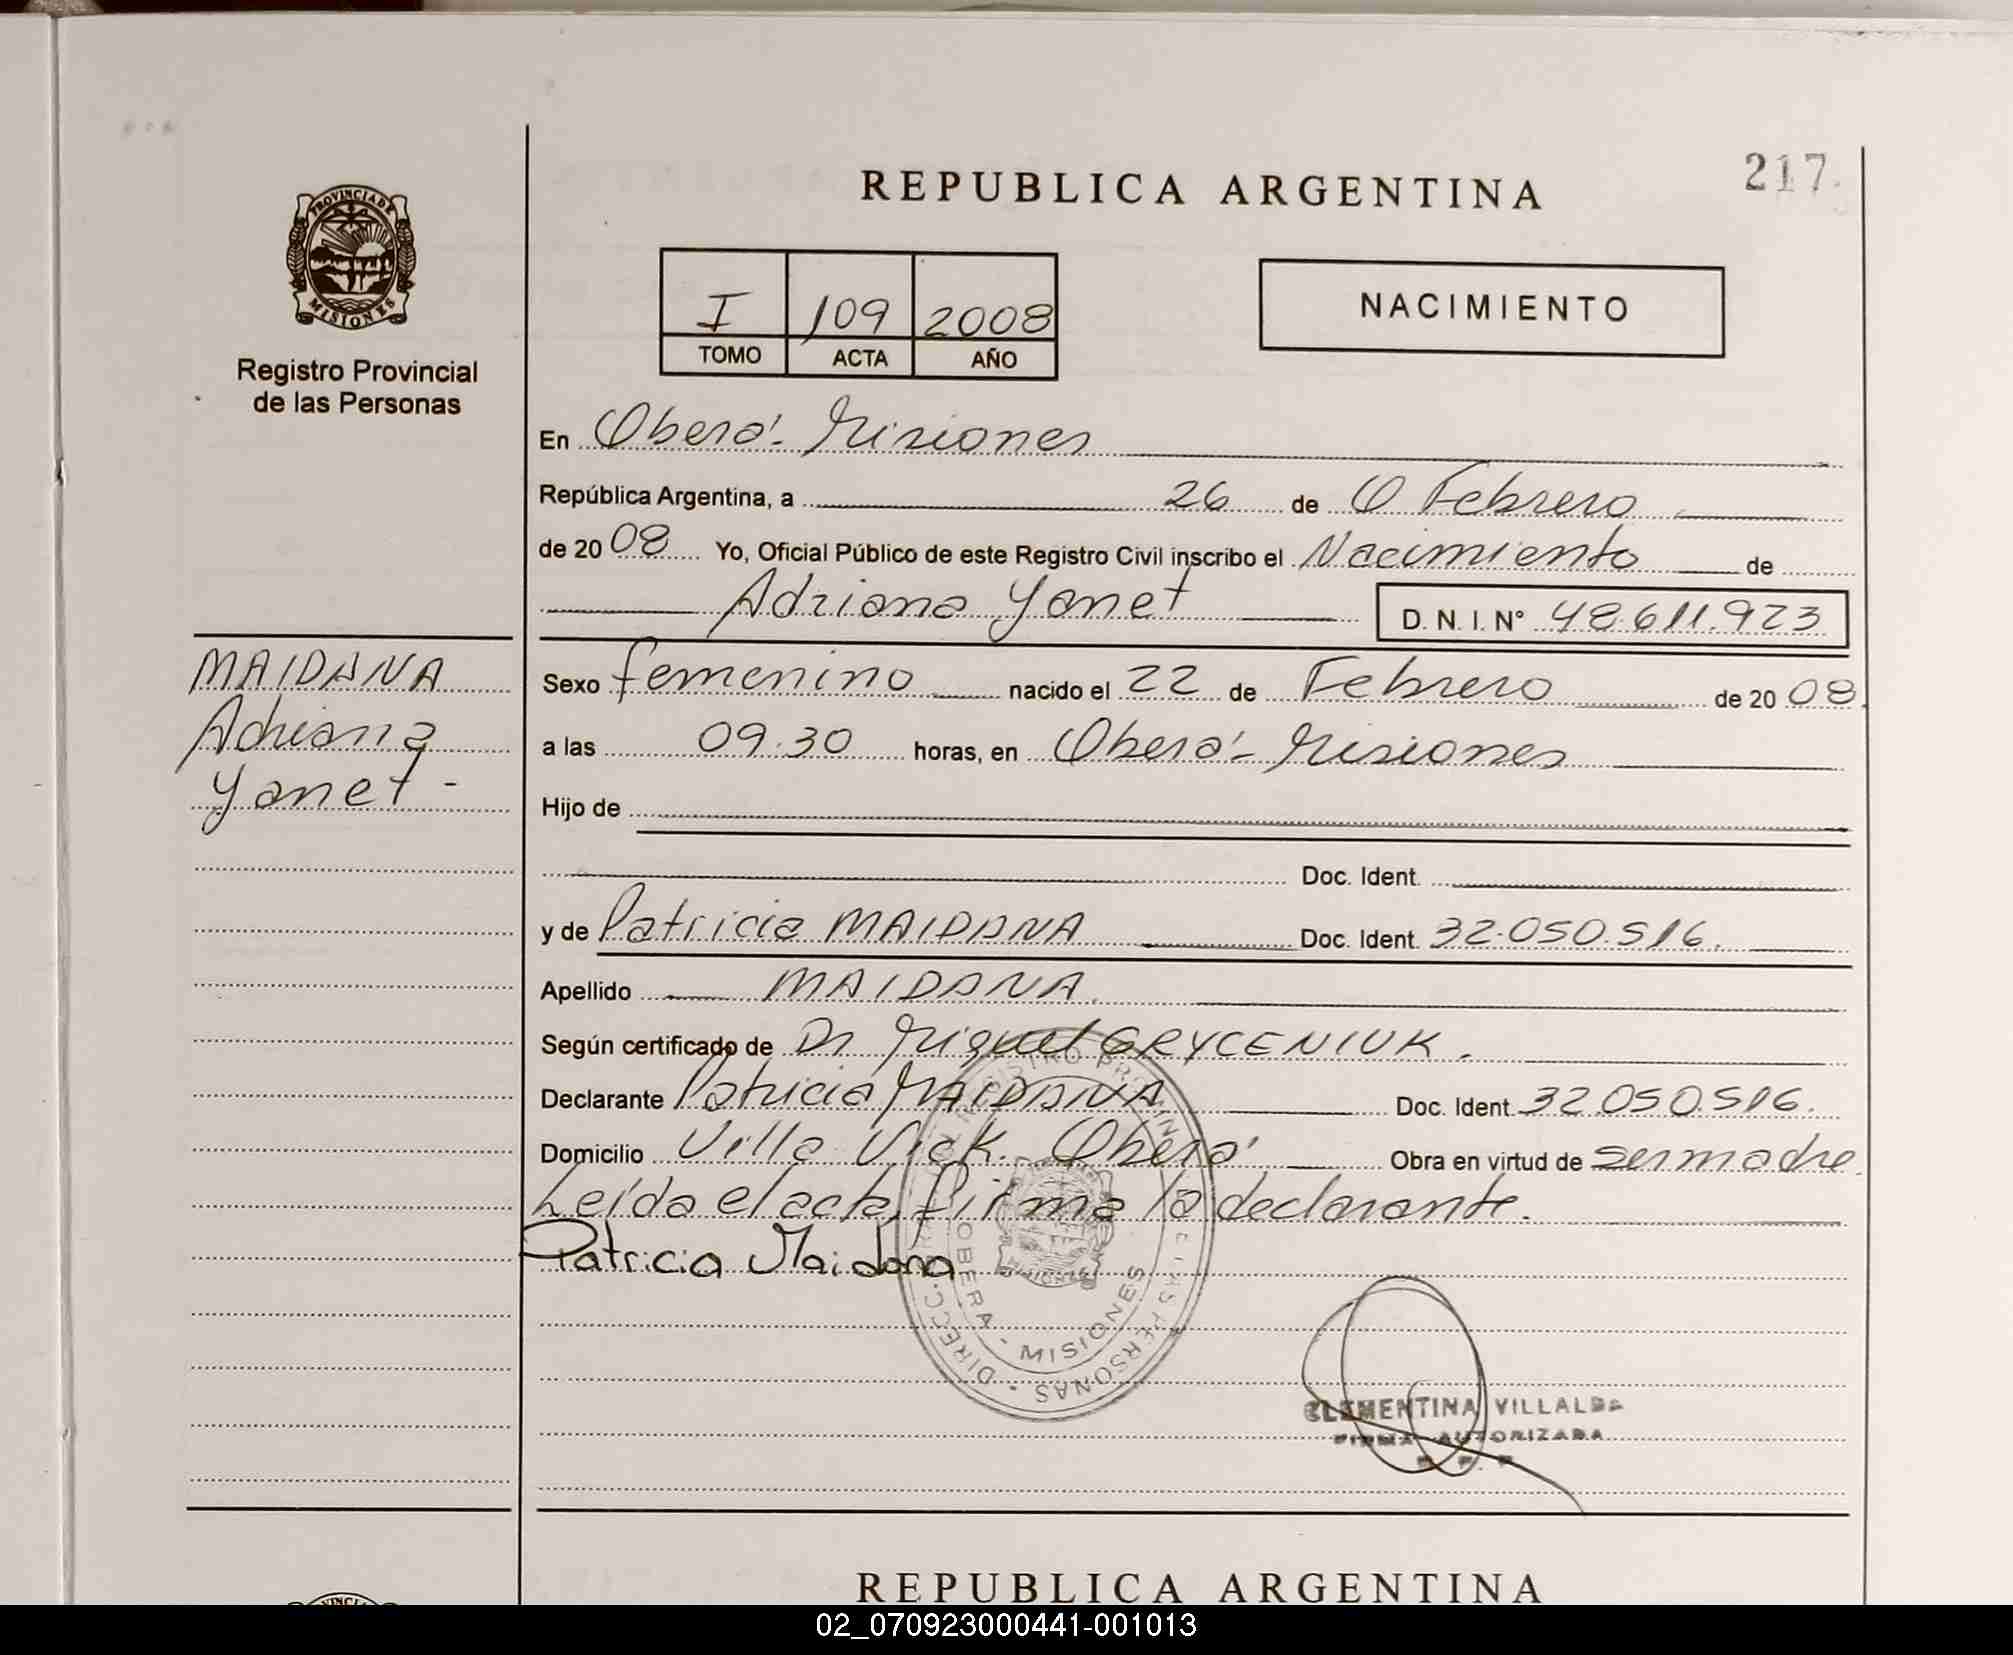 217
REPUBLICA ARGENTINA
PROVINCIA DE
MISIONES
Registro Provincial
de las Personas
I 109 2008
TOMO ACTA AÑO
NACIMIENTO
En Oberá - Misiones
República Argentina, a 26 de Febrero
de 20 08 Yo, Oficial Público de este Registro Civil inscribo el Nacimiento de
Adriana Yanet D. N. I. N° 48.611.923
MAIDANA
Adriana
Yanet -
Sexo femenino nacido el 22 de Febrero de 20 08
a las 09.30 horas, en Oberá - Misiones
Hijo de
Doc. Ident.
y de Patricia MAIDANA Doc. Ident. 32.050.516.
Apellido MAIDANA.
Según certificado de Dr Miguel GRYCENIUK.
Declarante Patricia MAIDANA Doc. Ident. 32.050.516.
Domicilio Villa Vick. Oberá Obra en virtud de ser madre
Leída el acta, firma la declarante.
Patricia Maidana
OBERA - MISIONES
CLEMENTINA VILLALBA
FIRMA AUTORIZADA
REPUBLICA ARGENTINA
02_070923000441-001013